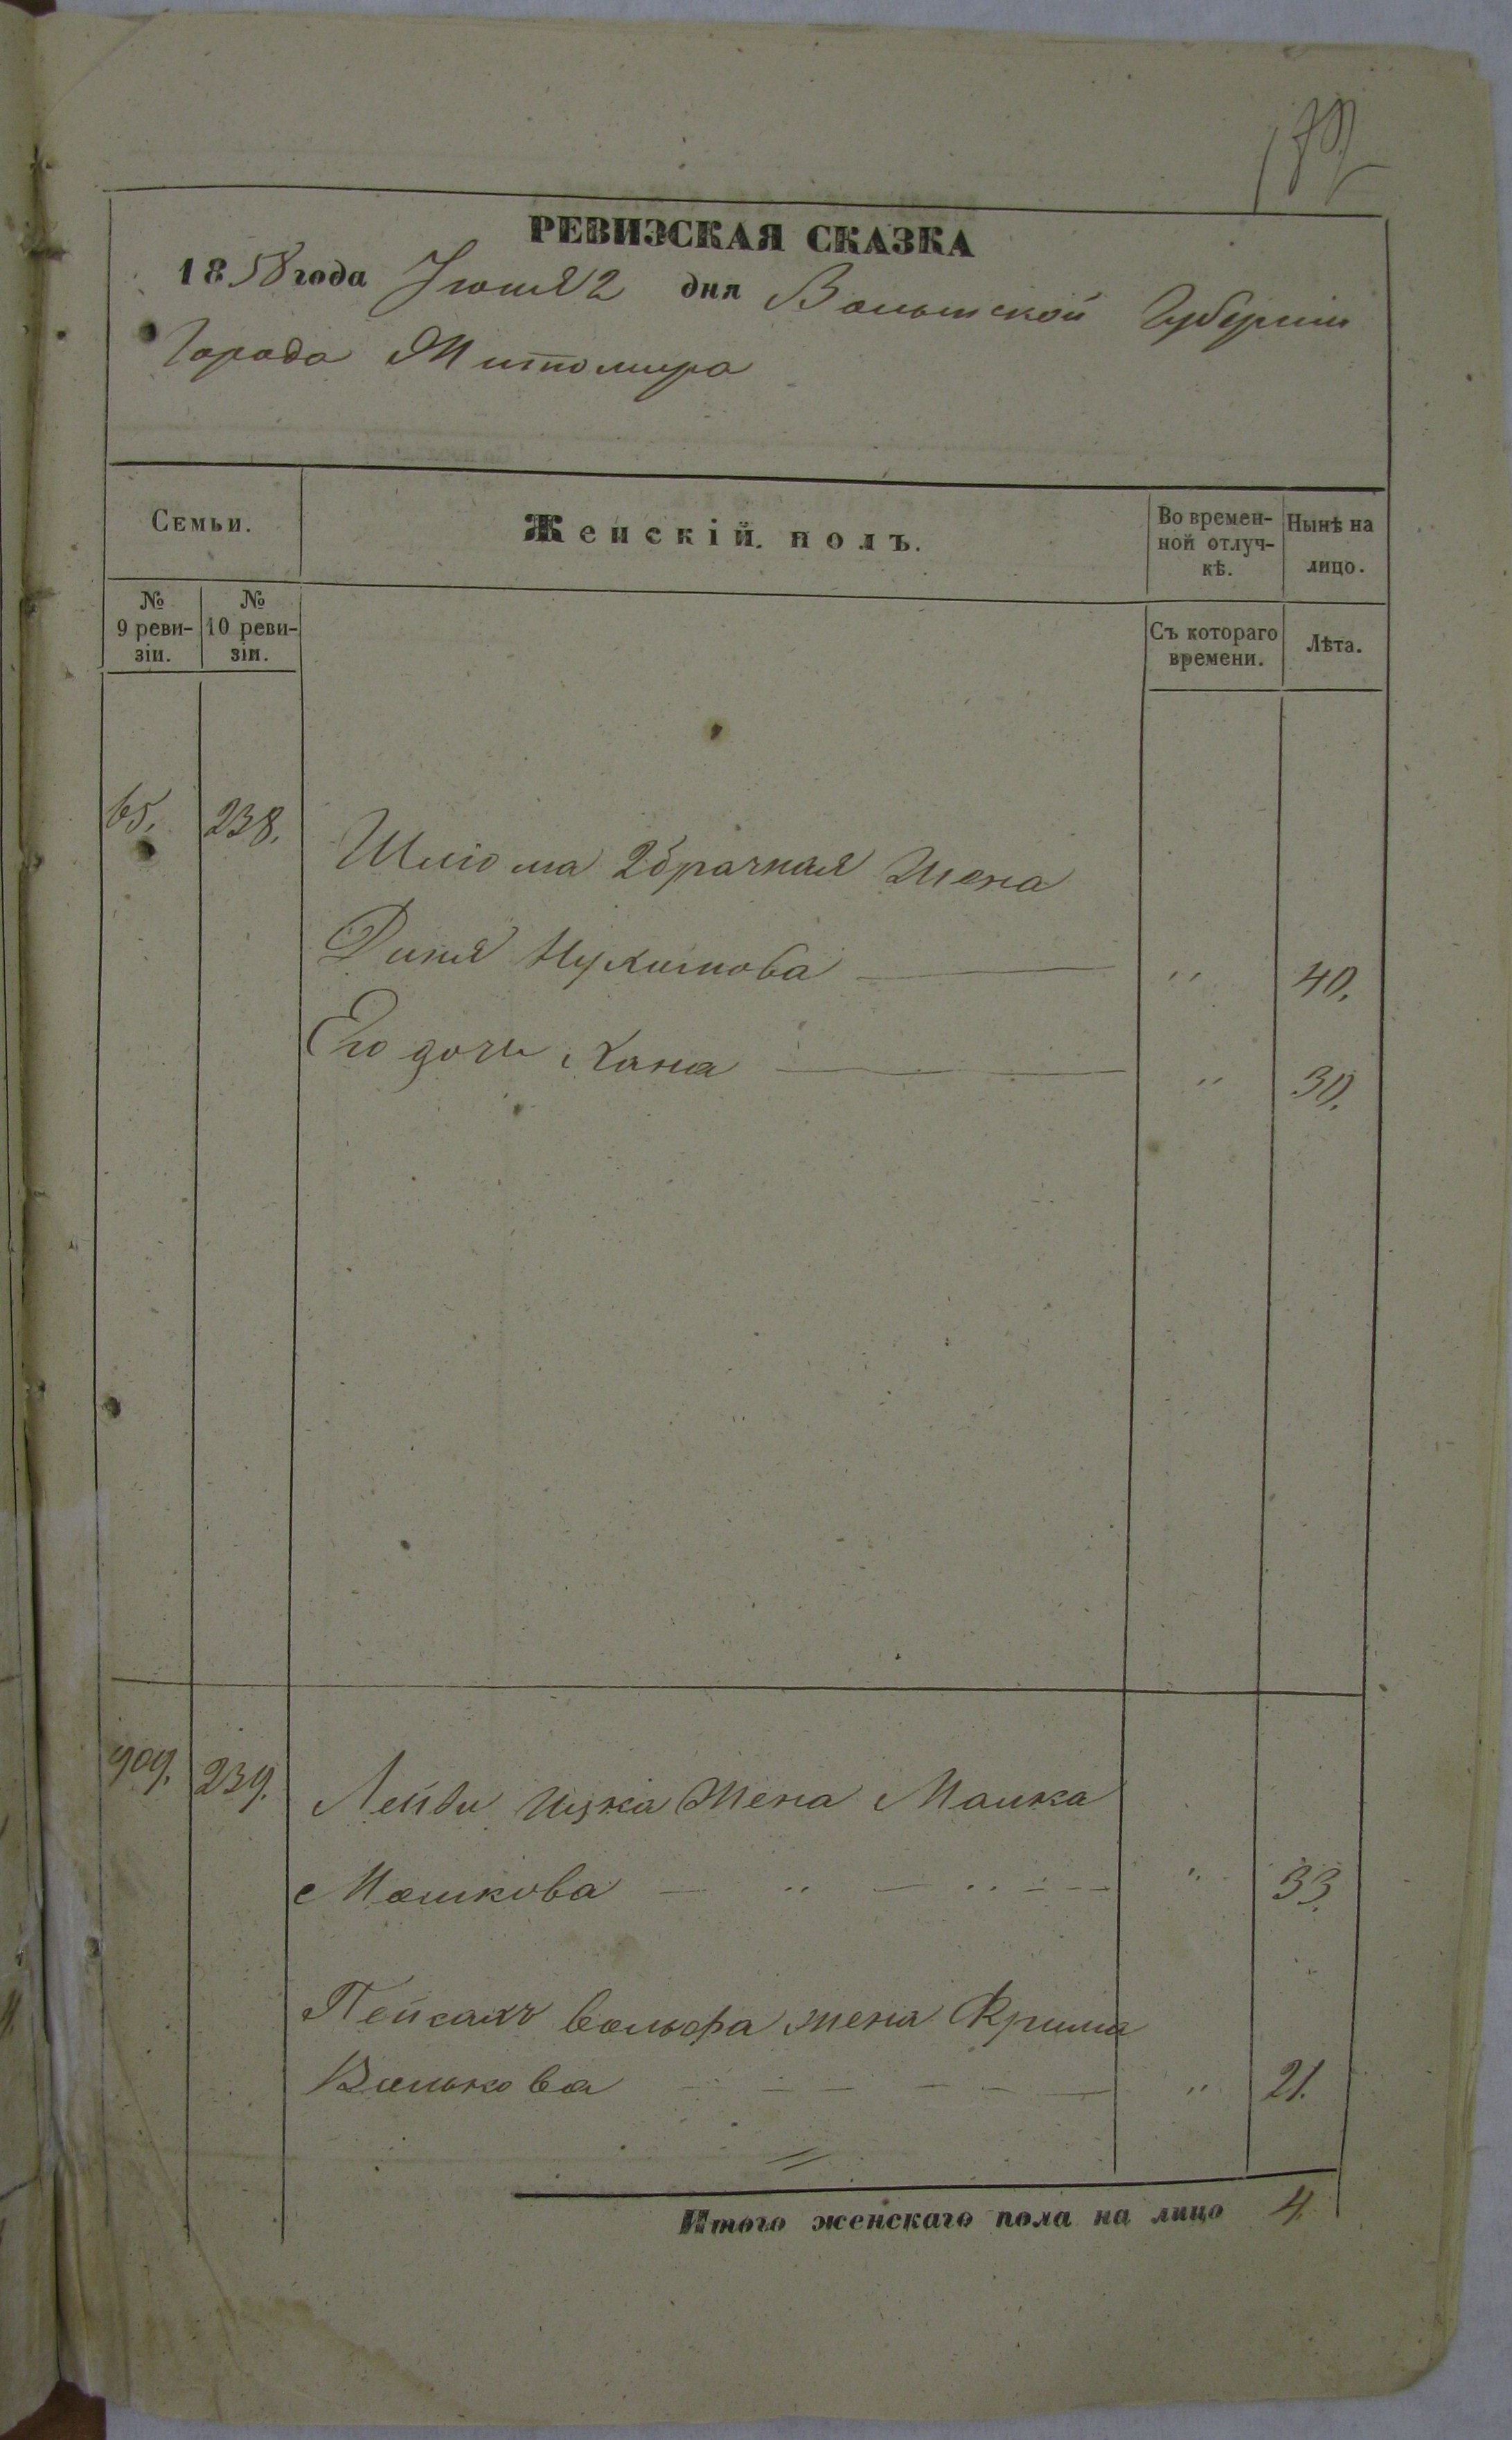 РЕВИЗСКАЯ СКАЗКА
1858 года Іюня 2 дня Волынской Губерніи
Города Житомира
Семьи.
Женскій полъ.
Во времен-
ной отлуч-
кѣ.
Нынѣ на
лицо.
№
9 реви-
зіи.
№
10 реви-
зіи.
Съ котораго
времени.
Лѣта.
65. 238. Шлiома 2брачная Жена
Диня Нухимова — " 40.
Его дочь Хана — " 30.
909. 239. Лейбы Ицка Жена Малка
Мошкова — " 33.
Пейсахъ Вольфа жена Фрима
Волькова — " 21.
Итого женскаго пола на лицо 4.